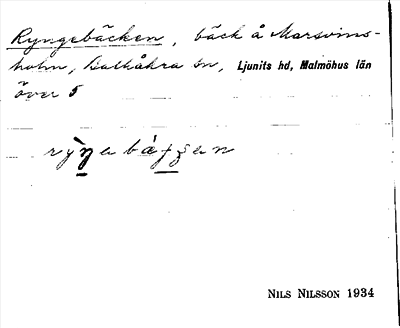 Ryngebäcken, bäck å Marsvins-
holm, Balkåkra sn, Ljunits hd, Malmöhus län
över 5
NILS NILSSON 1934